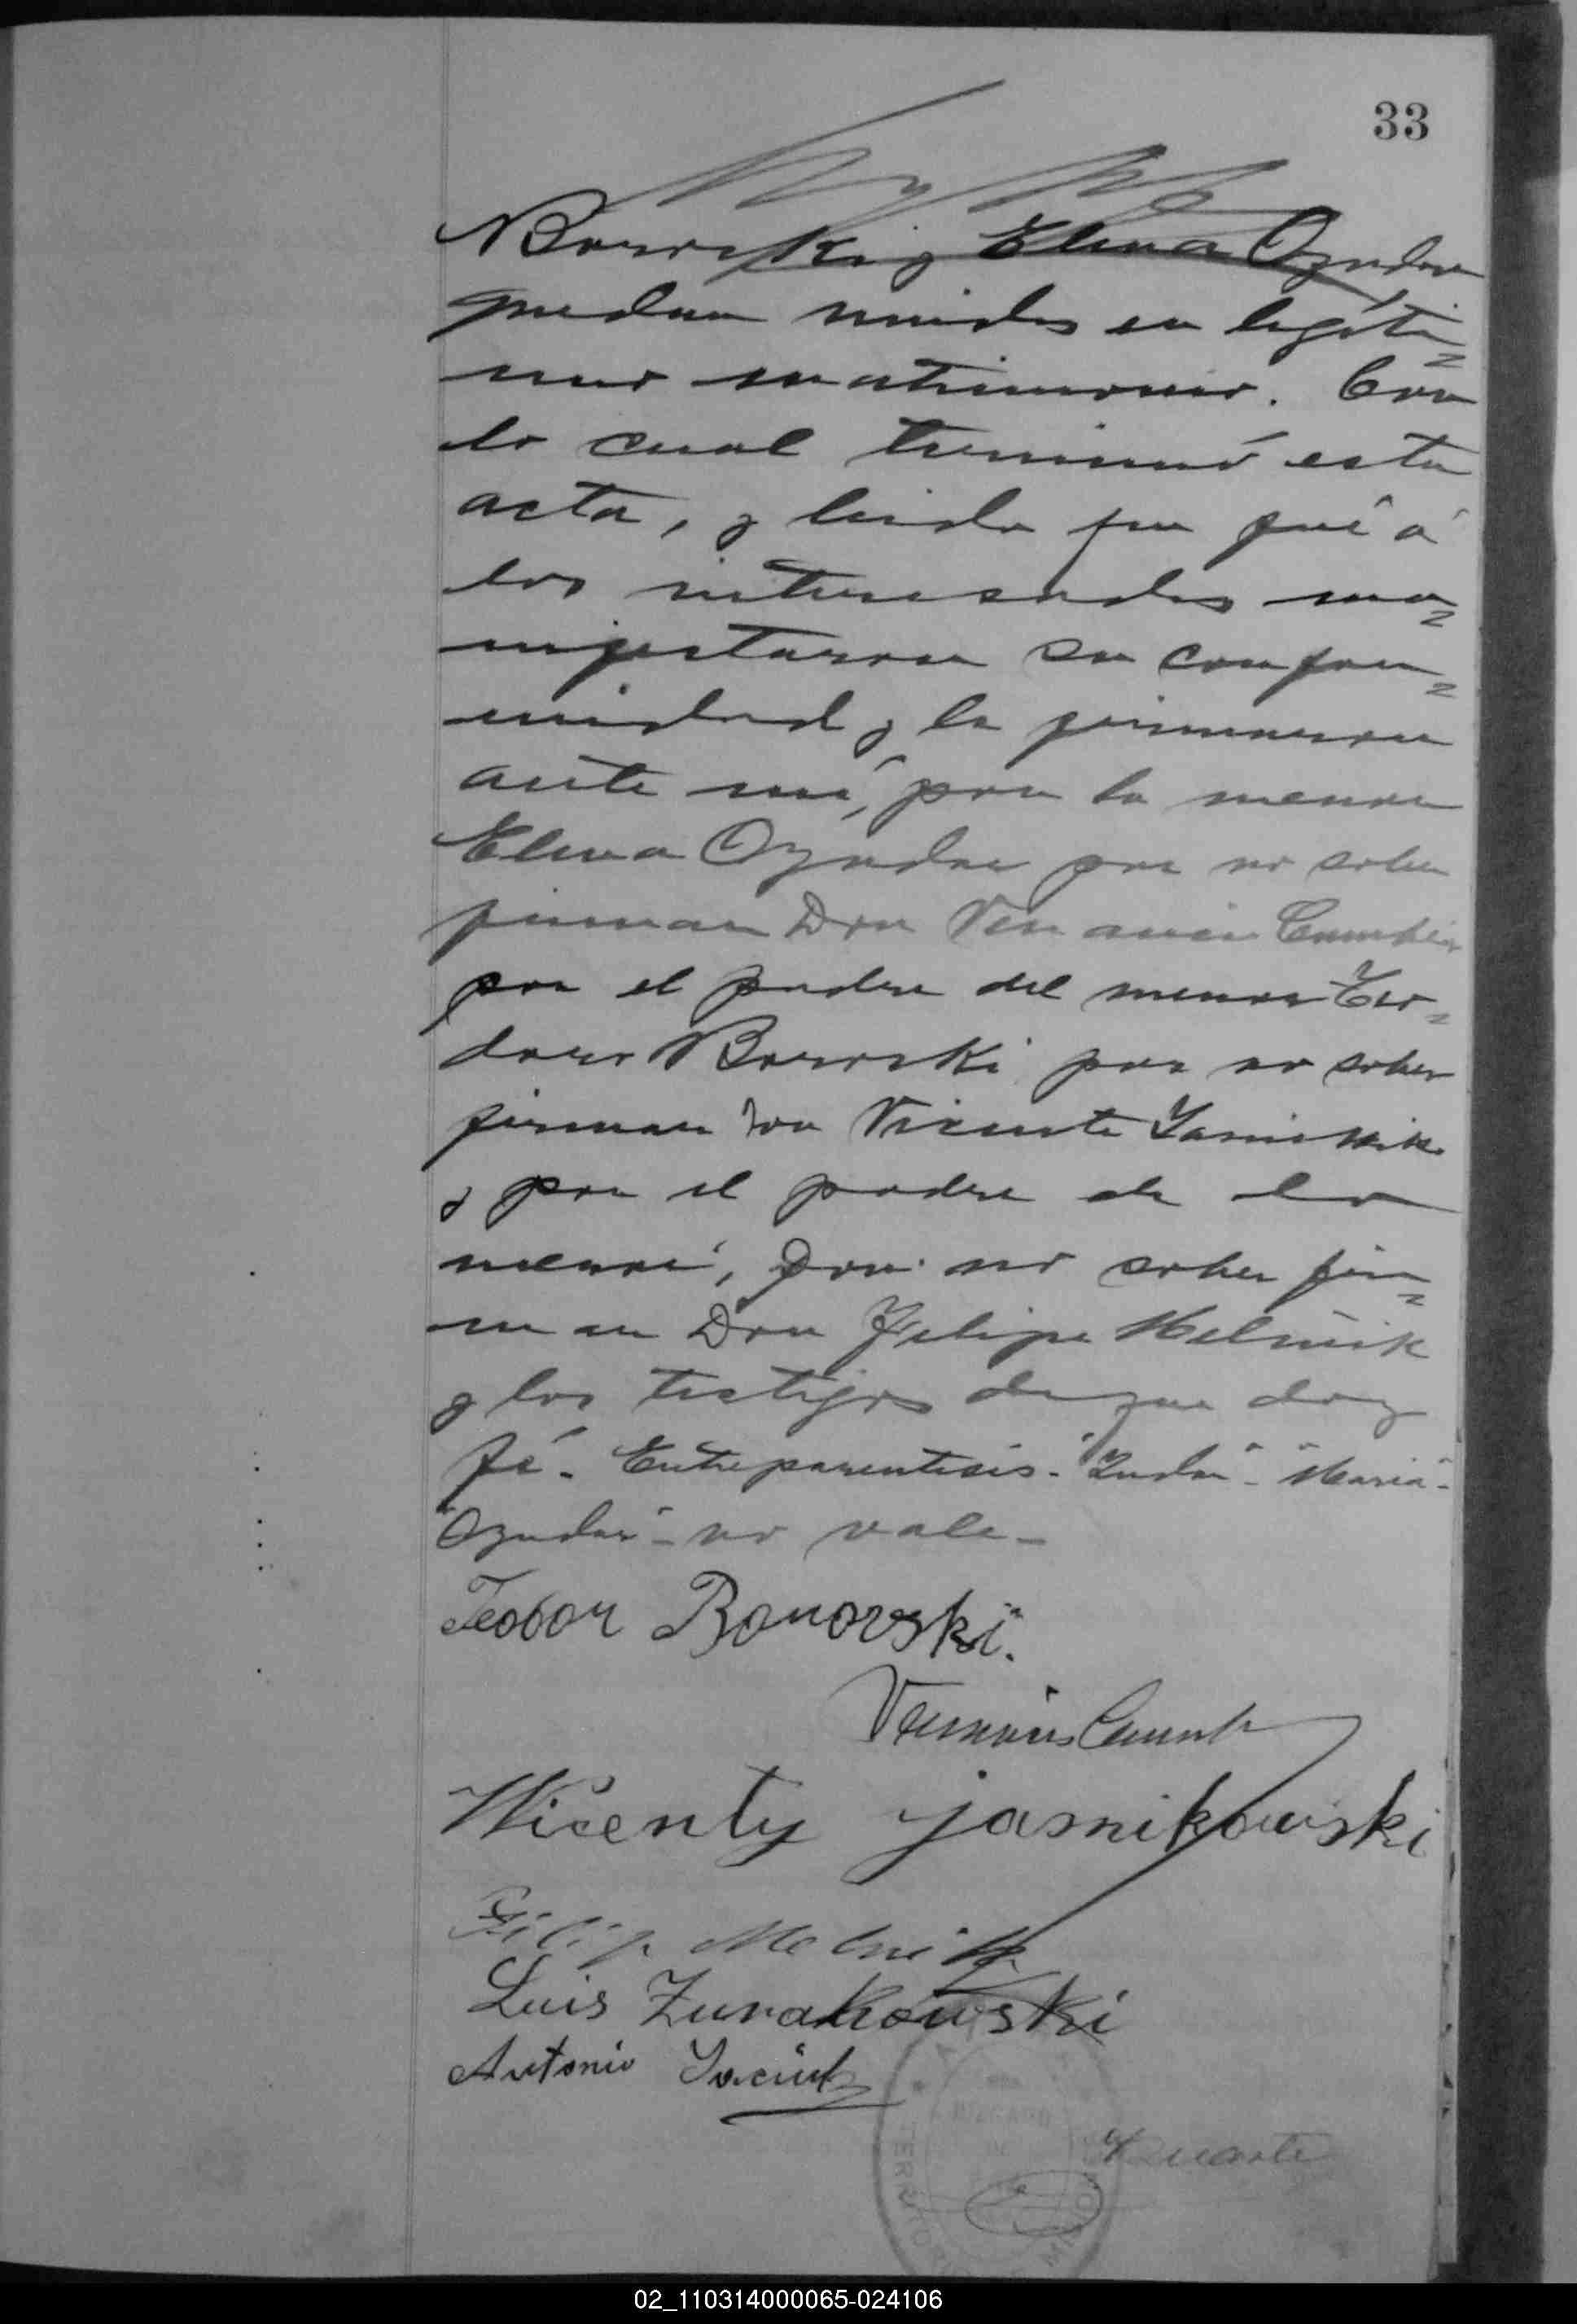 33
Borovski y Elena Ozudar
quedan unidos en legíti=
mo matrimonio. Con
lo cual terminó esta
acta, y leida que fué á
los interesados ma=
nifestaron su confor=
midad y la firmaron
ante mí, por la menor
Elena Ozudar por no saber
firmar Don Venancio
por el padre del menor Teo=
doro Borovski por no saber
firmar Don Vicente
y por el padre de la
menor, por no saber fir=
mar Don Felipe Melnik
y los testigos de que doy
fé. Entreparentesis. - "Maria" -
"Ozudar" - no vale -
Teodor Borovski.
Wicenty Jasnikowski
Filip Melnik
Luis Zurakowski
Antonio
JUZGADO
DE
Duarte
02_110314000065-024106